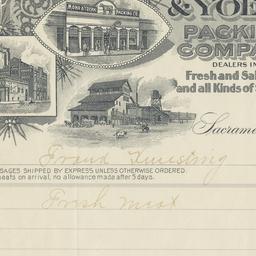 & YOE
MOHR & YOERK PACKING CO.
PACKIN
COMPA
DEALERS IN
Fresh and Sal
and all Kinds of S
Sacrame
Frank
SAGES SHIPPED BY EXPRESS UNLESS OTHERWISE ORDERED.
eats on arrival, no allowance made after 5 days.
Fresh meat